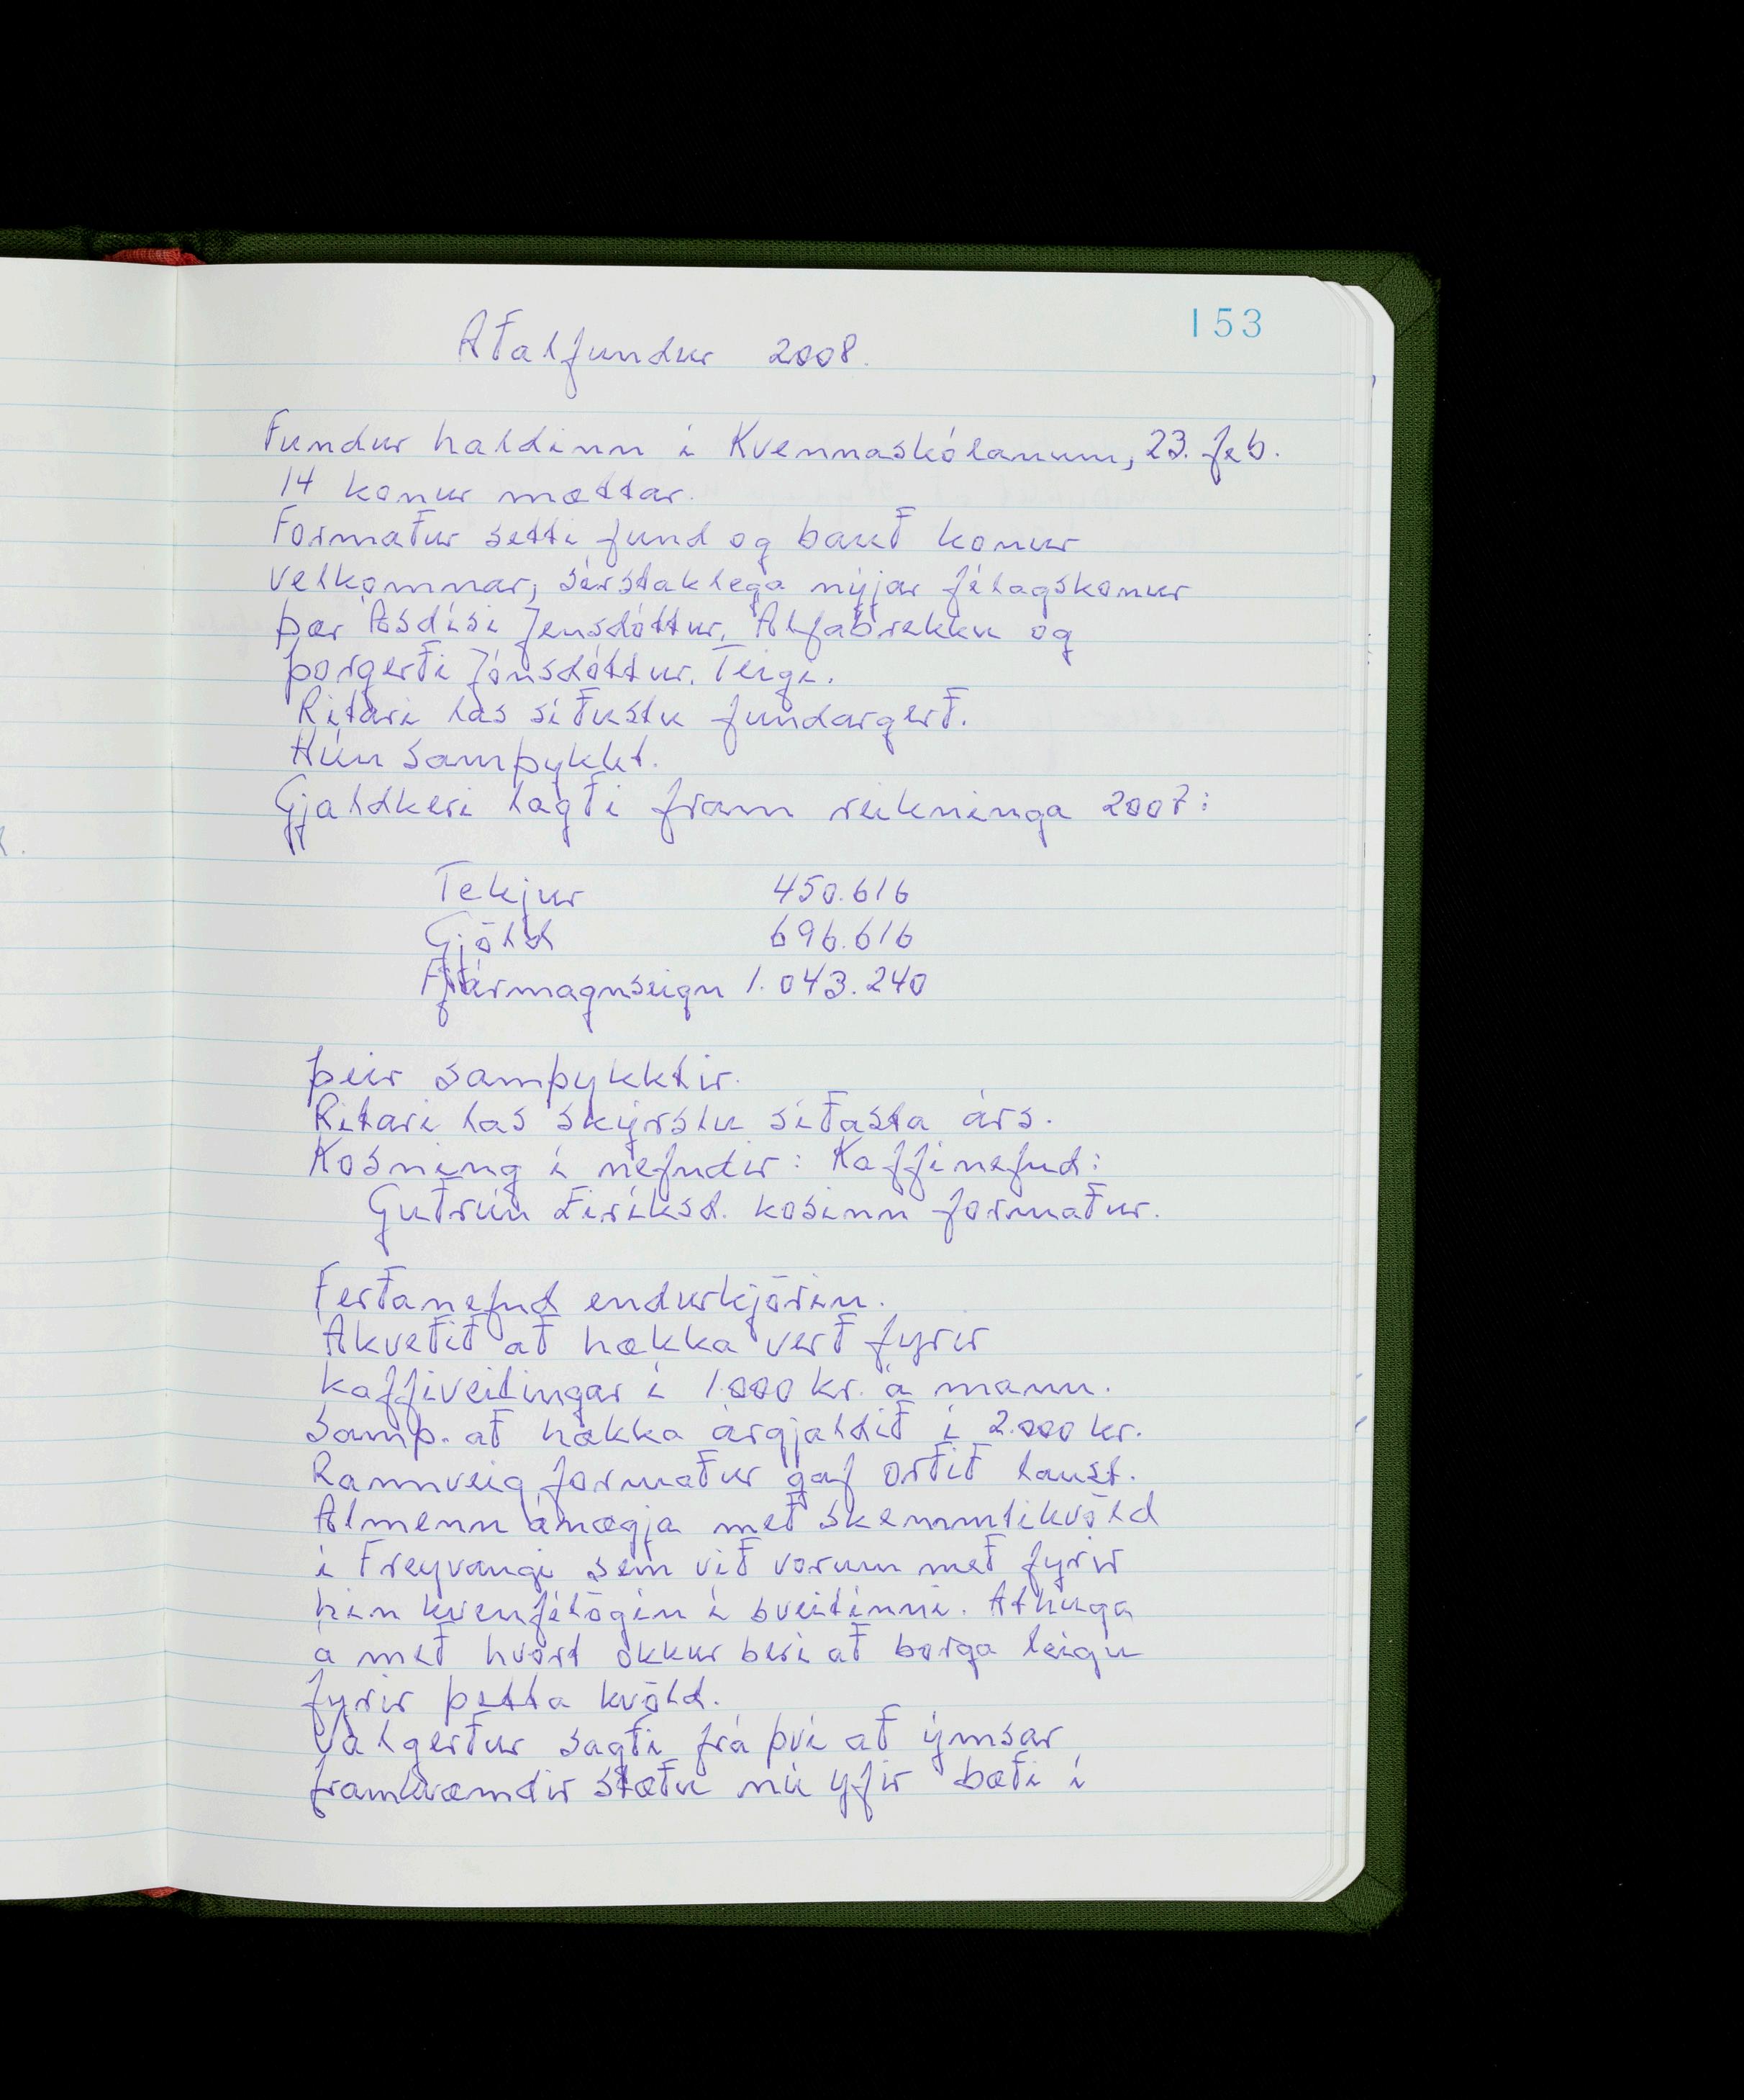 153
Aðalfundur 2008.
Fundur haldinn í Kvennaskólanum, 23. feb.
14 konur mættar.
Formaður setti fund og bauð konur
velkomnar, sérstaklega nýjar félagskonur
þær Ásdísi Jensdóttur, Álfabrekku og
Þorgerði Jónsdóttur, Teigi.
Ritari las síðustu fundargerð.
Hún samþykkt.
Gjaldkeri lagði fram reikninga 2007:
Tekjur 450.616
Gjöld 696.616
Fjármagnseign 1.043.240
Þeir samþykktir.
Ritari las skýrslu síðasta árs.
Kosning í nefndir: Kaffinefnd:
Guðrún Eiríksd. kosinn formaður.
Ferðanefnd endurkjörin.
Ákveðið að hækka verð fyrir
kaffiveitingar í 1.000 kr. á mann.
Samþ. að hækka árgjaldið í 2.000 kr.
Rannveig formaður gaf orðið laust.
Almenn ánægja með skemmtikvöld
í Freyvangi sem við vorum með fyrir
hin kvenfélögin í sveitinni. Athuga
á með hvort okkur beri að borga leigu
fyrir þetta kvöld.
Valgerður sagði frá því að ýmsar
framkvæmdir stæðu nú yfir bæði í